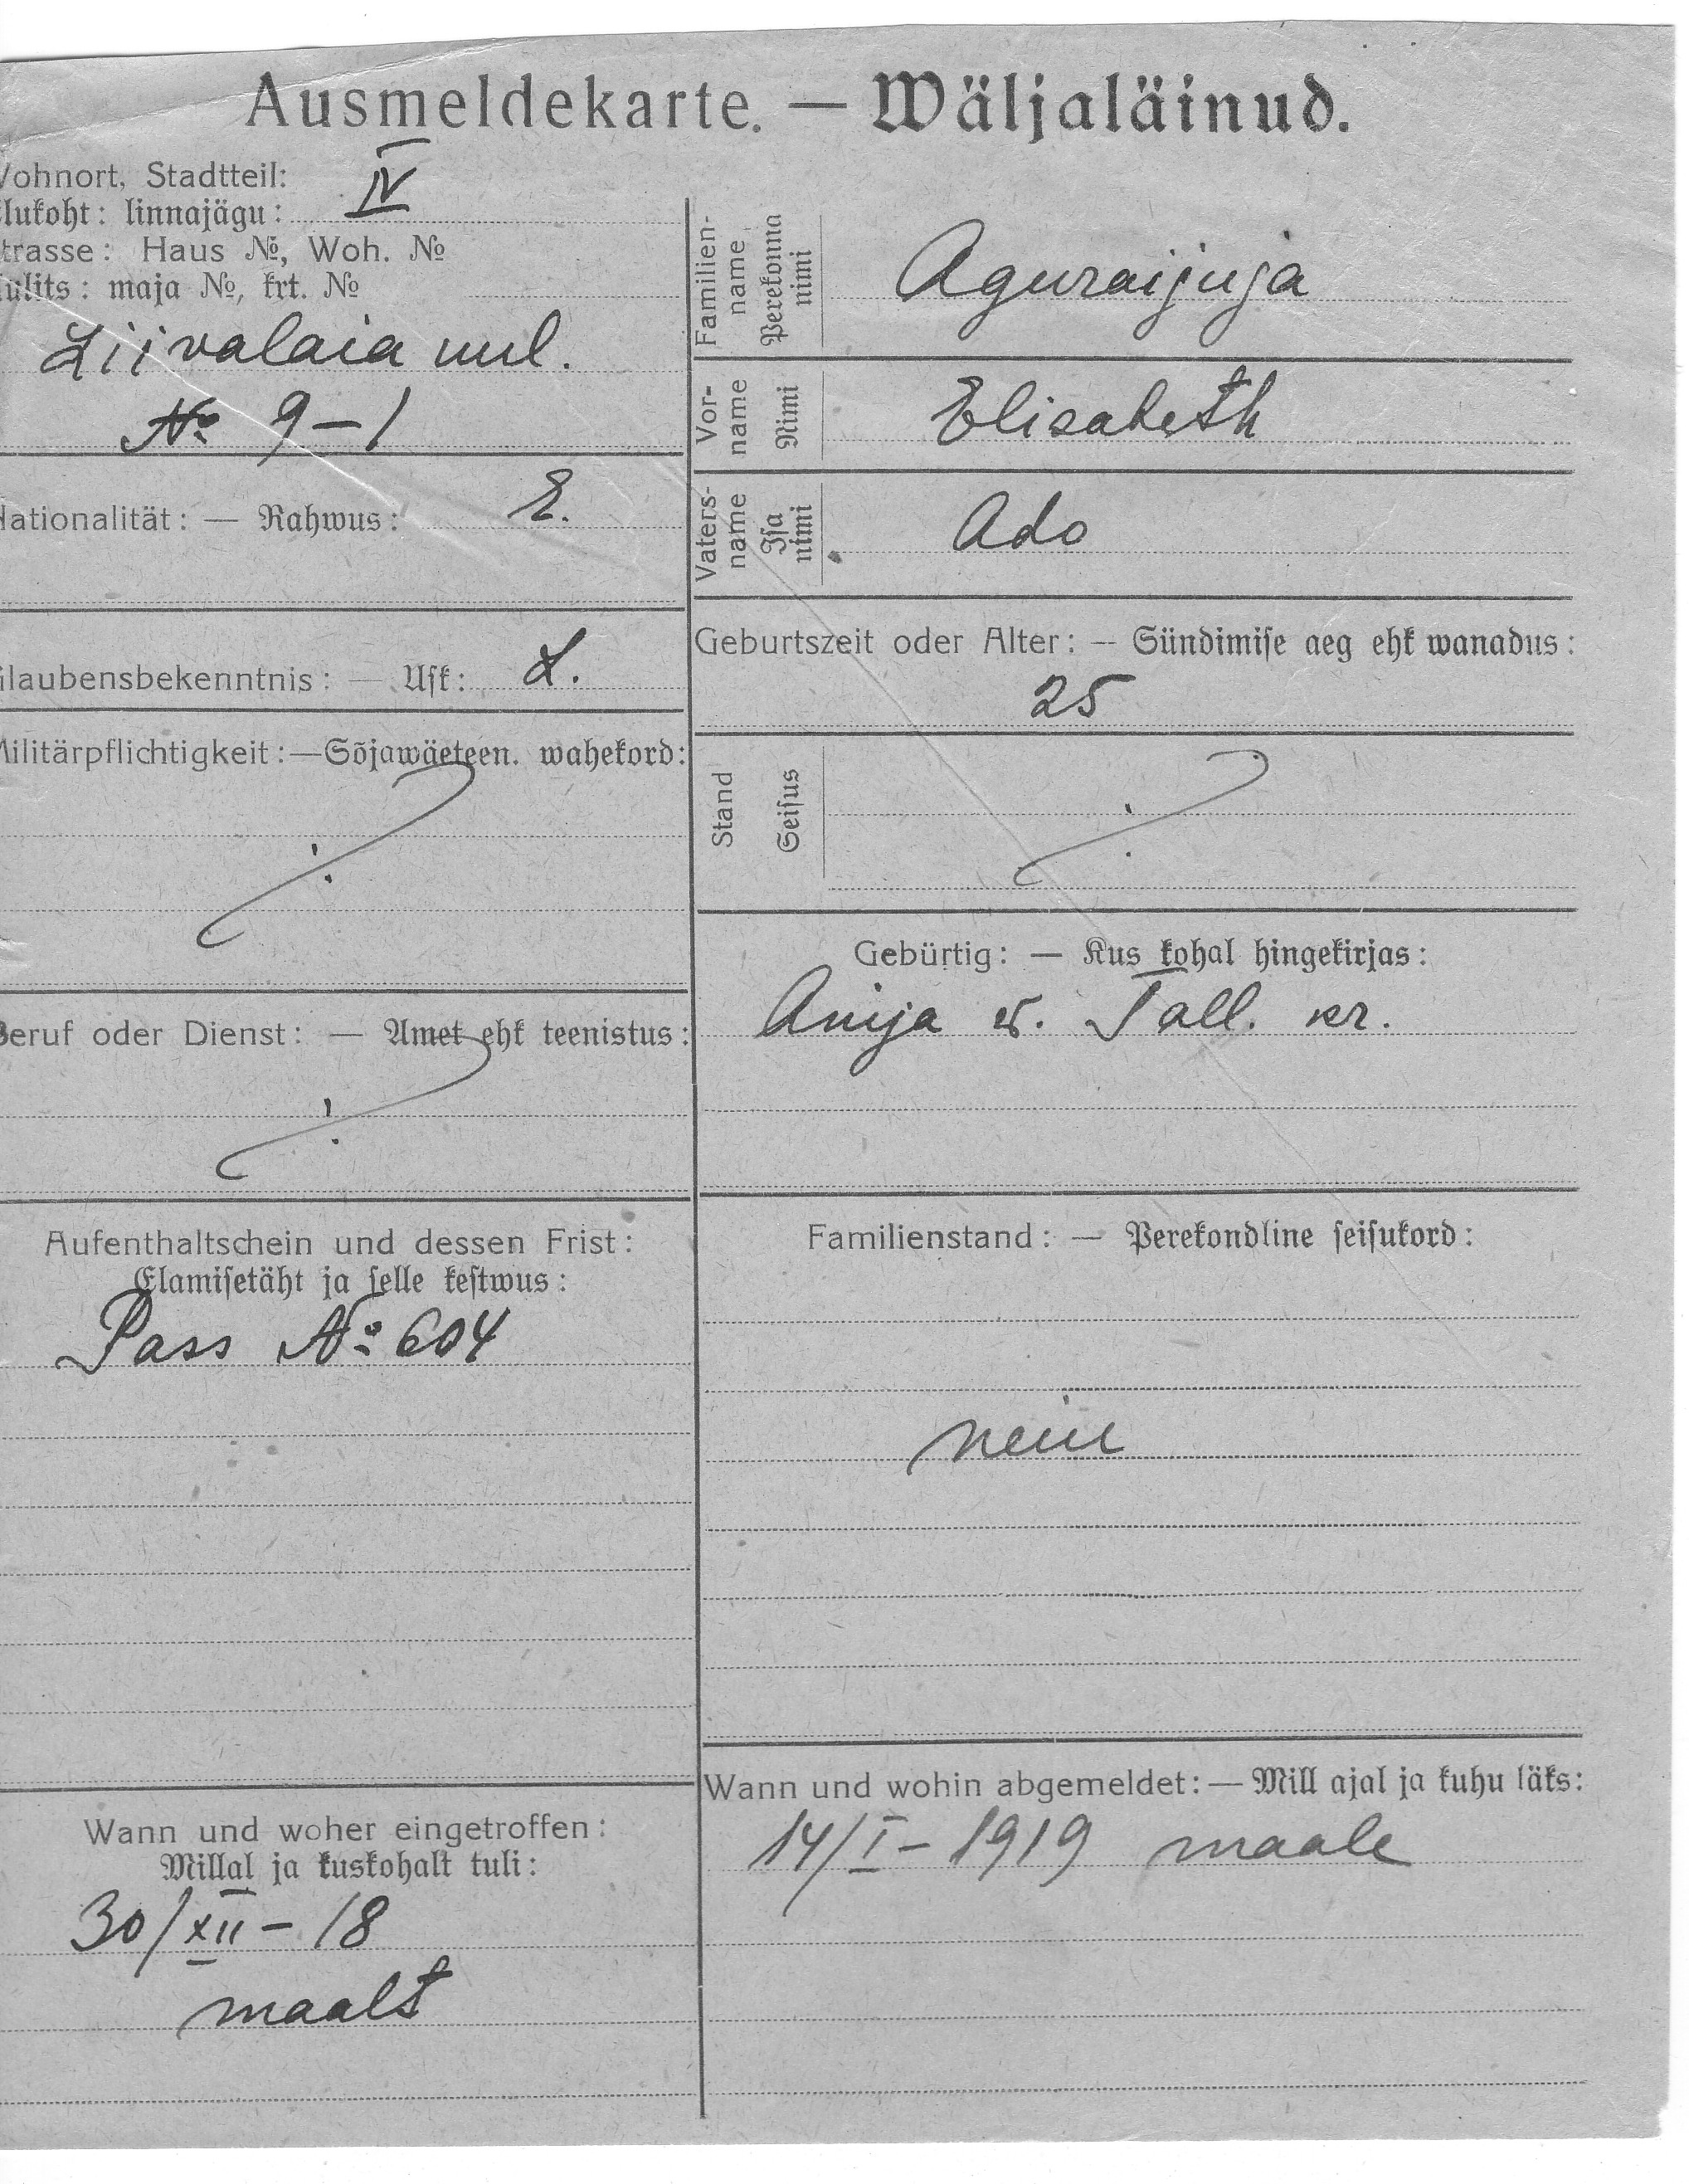 Ausmeldekarte. — Wäljaläinud.
Wohnort, Stadtteil: IV
Elukoht: linnajägu:
Strasse: Haus №, Woh. №
Uulits: maja №, krt. №
Liivalaia uul.
№ 9–1
Nationalität: — Rahwus: E.
Glaubensbekenntnis: — Usk: L.
Militärpflichtigkeit: — Sõjawäeteen. wahekord:
Beruf oder Dienst: — Amet ehk teenistus:
Aufenthaltschein und dessen Frist:
Elamisetäht ja selle kestwus:
Pass № 604
Wann und woher eingetroffen:
Millal ja kuskohalt tuli:
30/XII – 18
maalt
Familien-
name
Perekonna
nimi
Aguraijuja
Vor-
name
Nimi
Elisabeth
Vaters-
name
Isa
nimi
Ado
Geburtszeit oder Alter: — Sündimise aeg ehk wanadus:
25
Stand
Seisus
Gebürtig: — Kus kohal hingekirjas:
Anija w. Tall. kr.
Familienstand: — Perekondline seisukord:
Wann und wohin abgemeldet: — Mill ajal ja kuhu läks:
14/I – 1919 maale